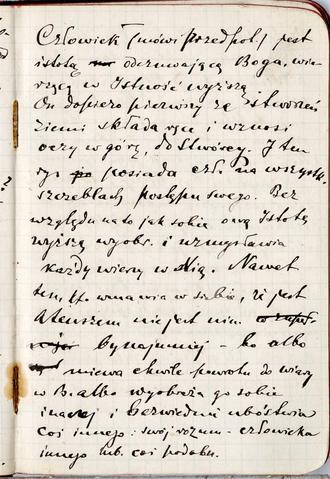 Człowiek (mówi przedpot.) jest
istotą odczuwającą Boga, wie-
rzącą w Istność wyższą.
On dopiero pierwszy ze stworzeń
ziemi składa ręce i wznosi
oczy w górę, do Stwórcy. I ten
rys posiada czł. na wszystk.
szczeblach postępu swego. Bez
względu na to jak sobie ową Istotę
wyższą wyobr. i uzmysławia
każdy wierzy w Nią. Nawet
ten, co wmawia w siebie, że jest
Ateuszem nie jest nim
bynajmniej – bo albo
miewa chwile powrotu do wiary
w B. albo wyobraża go sobie
inaczej i bezwiednie ubóstwia
coś innego: swój rozum – człowieka
innego lub. coś podobn.